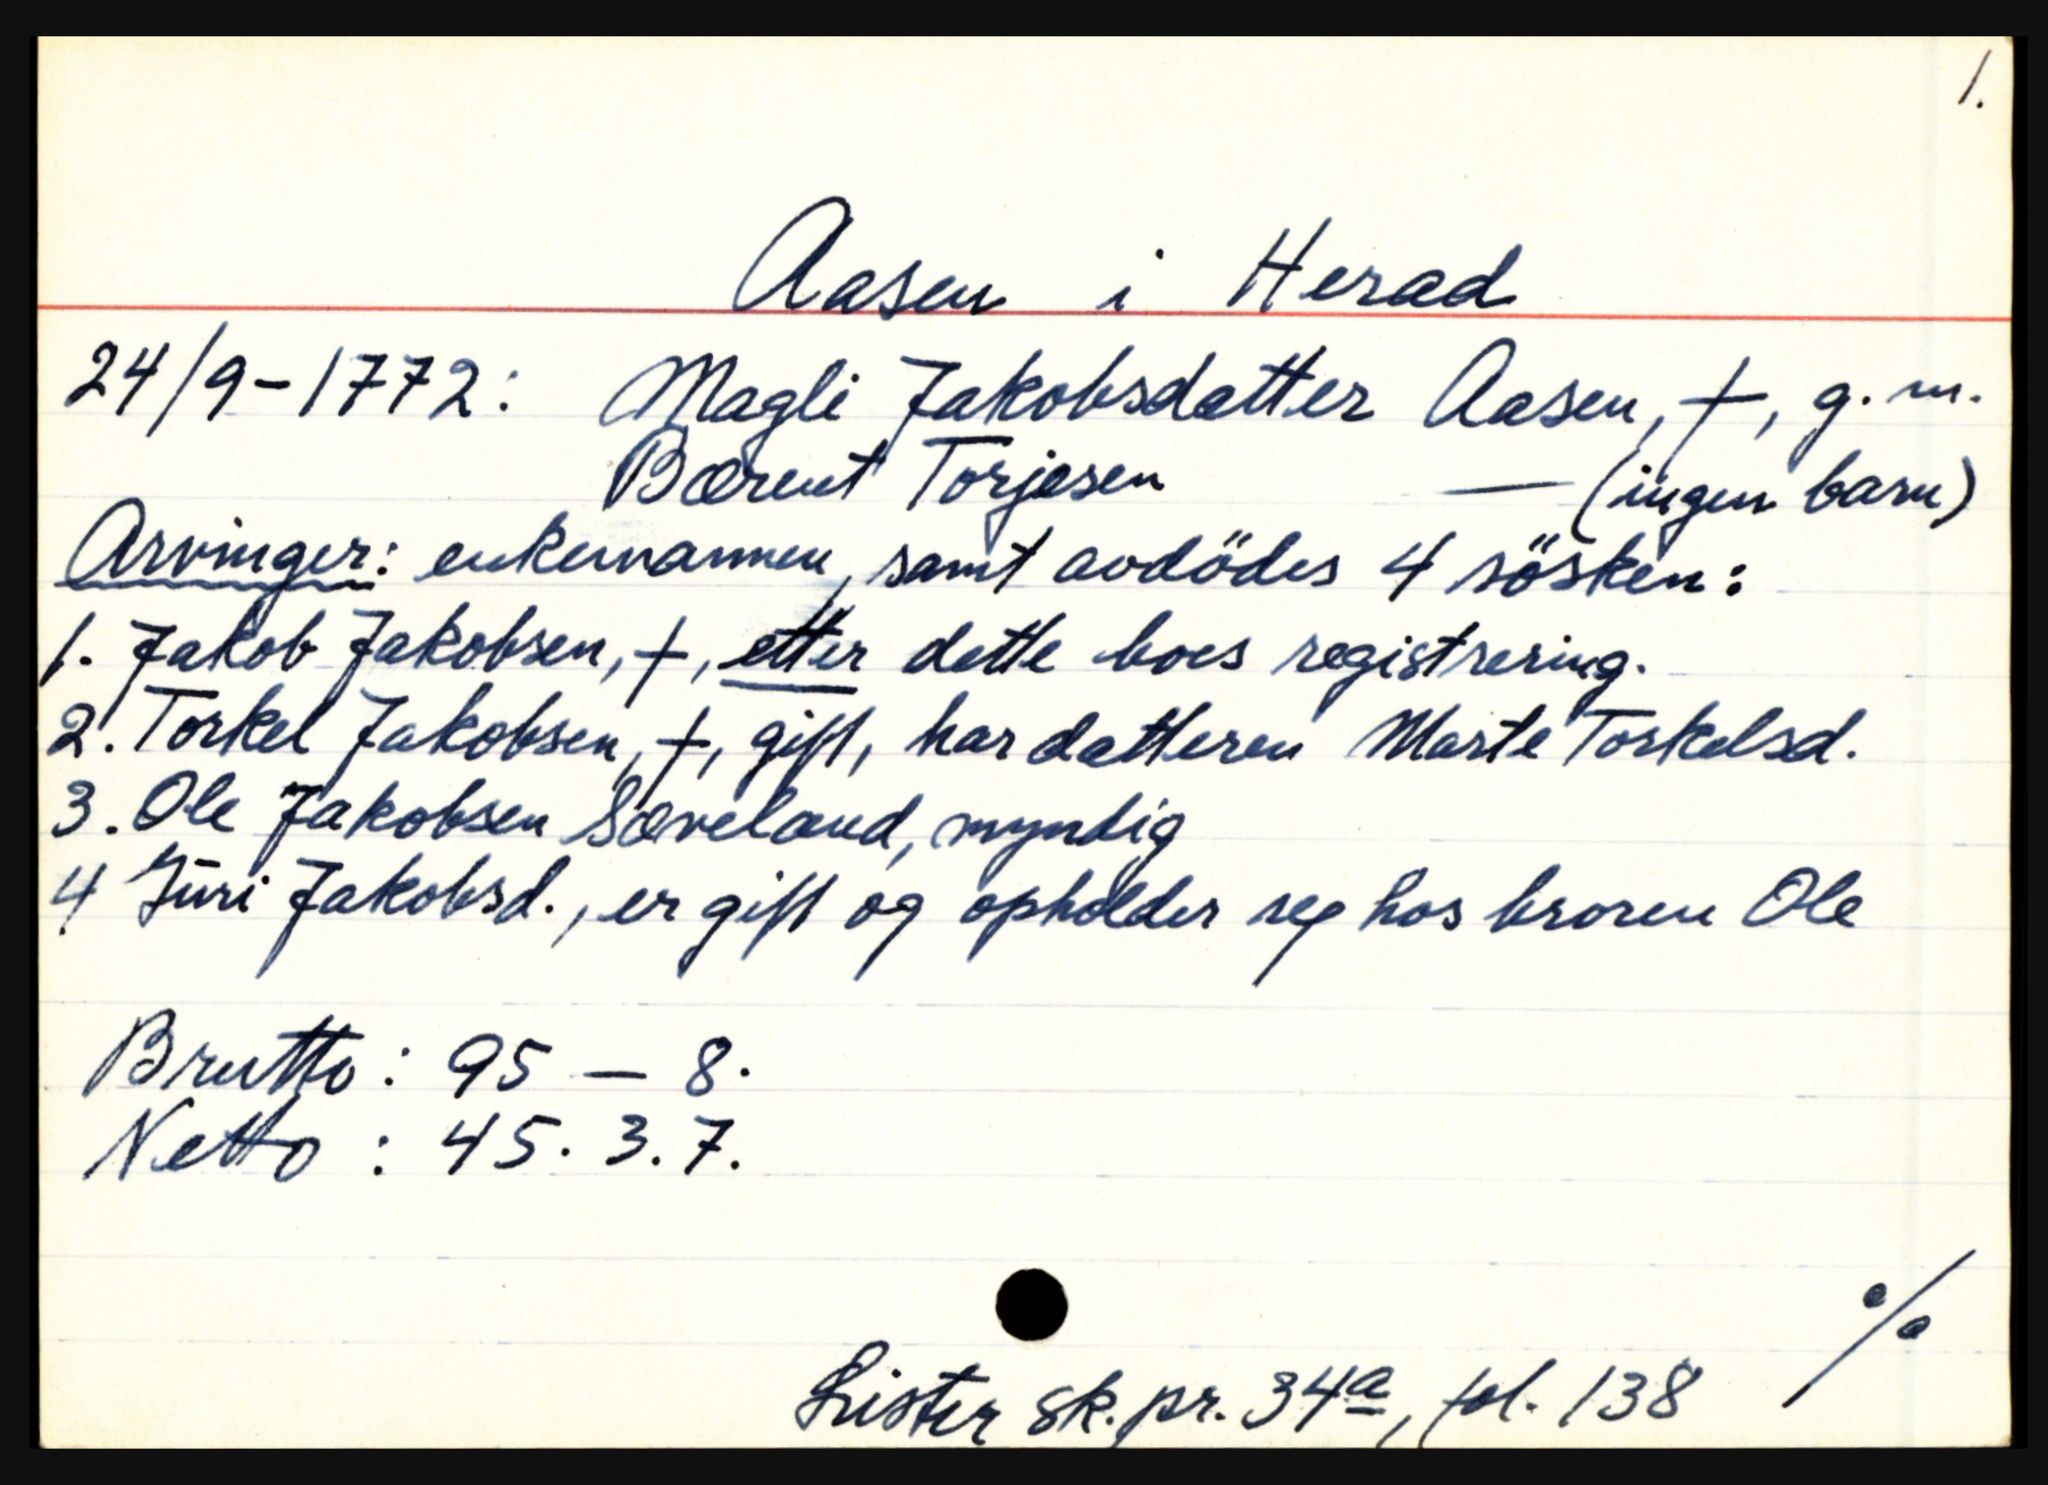 1.
Aasen i Herad
24/9-1772: Magli Jakobsdatter Aasen, †, g. m.
Bærent Torjesen — (ingen barn)
Arvinger: enkemannen, samt avdödes 4 sösken:
1. Jakob Jakobsen, †, etter dette boes registrering.
2. Torkel Jakobsen, †, gift, har datteren Marte Torkelsd.
3. Ole Jakobsen Sæveland, myndig
4 Juri Jakobsd., er gift og opholder seg hos broren Ole
Brutto: 95 — 8.
Netto: 45. 3. 7.
%
Lister sk. pr. 34a, fol. 138